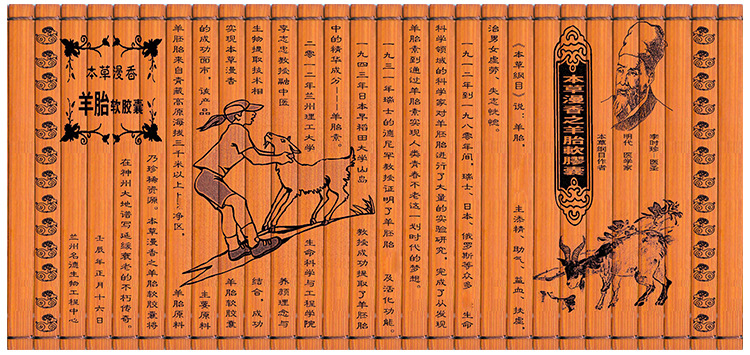 李时珍 医圣
明代 医学家
本草纲目作者
本草漫香之羊胎軟膠囊
《本草纲目》说：羊胎， 主添精、助气、益血、扶虚，
治男女虚劳、失志恍惚。
一九一二年到一九八〇年间，瑞士、日本、俄罗斯等众多 生命
科学领域的科学家对羊胚胎进行了大量的实验研究，完成了从发现
羊胎素到通过羊胎素实现人类青春不老这一划时代的梦想。
一九三一年瑞士的德尼罕教授证明了羊胚胎 及活化功能。
一九四三年日本早稻田大学山岛 教授成功提取了羊胚胎
中的精华成分——羊胎素。
二零一二年兰州理工大学 生命科学与工程学院
李志忠教授融中医 养颜理念与
生物提取技术相 结合，成功
实现本草漫香 羊胎软胶囊
的成功面市，该产品 主要原料
羊胚胎来自青藏高原海拔三千米以上 净区， 羊胎原料
乃珍稀资源。本草漫香之羊胎软胶囊将
在神州大地谱写延缓衰老的不朽传奇。
壬辰年正月十六日
兰州名德生物工程中心
本草漫香
羊胎软胶囊